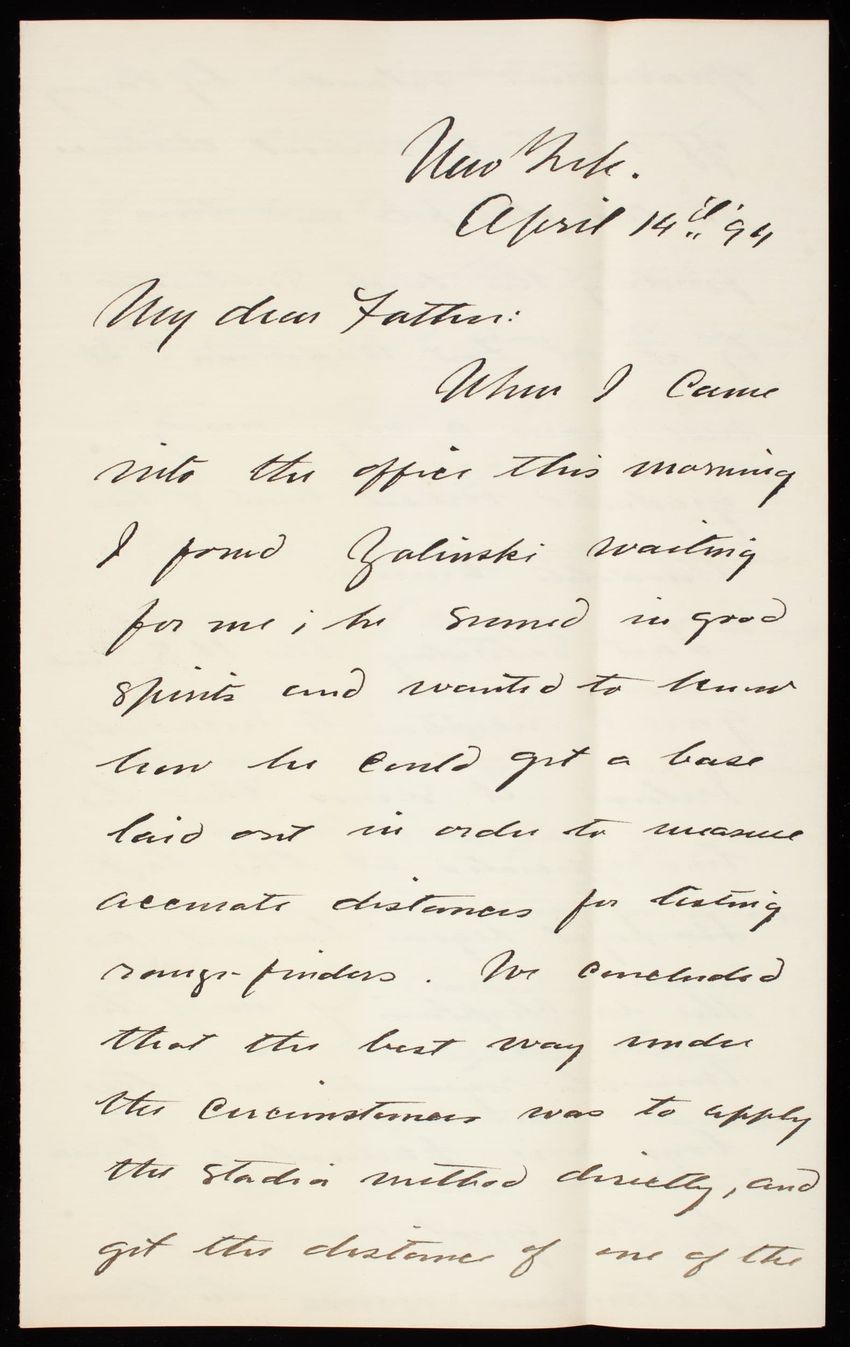 New York.
April 14th '94
My dear Father:
When I came
into the office this morning
I found Zalinski waiting
for me; he seemed in good
spirits and wanted to know
how he could get a base
laid out in order to measure
accurate distances for testing
range-finders. We concluded
that the best way under
the circumstances was to apply
the stadia method directly, and
get the distance of one of the